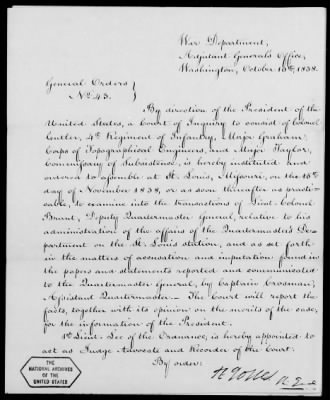 War Department,
Adjutant General's Office,
Washington, October 10th, 1838.
General Orders
No. 43.
By direction of the President of the
United States, a Court of Inquiry to consist of Colonel
Cutler, 4th Regiment of Infantry, Major Graham,
Corps of Topographical Engineers, and Major Taylor,
Commissary of Subsistence, is hereby instituted and
ordered to assemble at St. Louis, Missouri, on the 15th
day of November 1838, or as soon thereafter as practi-
cable, to examine into the transactions of Lieut. Colonel
Brant, Deputy Quartermaster General, relative to his
administration of the affairs of the Quartermaster's De-
partment on the St. Louis station, and as set forth
in the matters of accusation and imputation found in
the papers and statements reported and communicated
to the Quartermaster General, by Captain Crosman,
Assistant Quartermaster — The Court will report the
facts, together with its opinion on the merits of the case,
for the information of the President.
1st Lieut. Lee of the Ordnance, is hereby appointed to
act as Judge Advocate and Recorder of the Court.
By order:
THE
NATIONAL ARCHIVES
OF THE
UNITED STATES